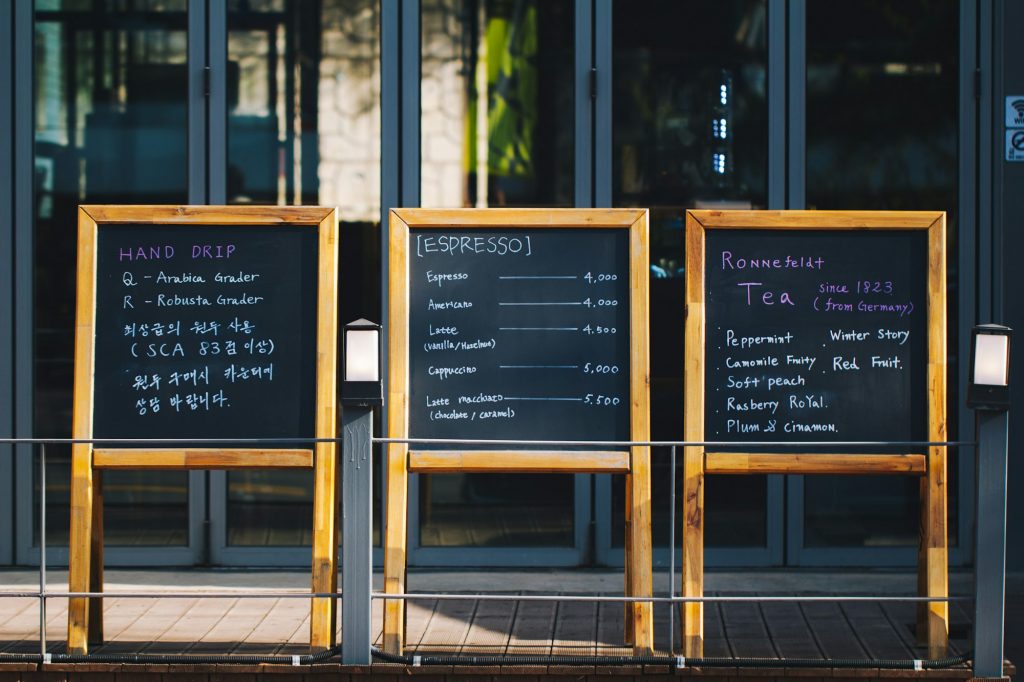 HAND DRIP
Q - Arabica Grader
R - Robusta Grader
최상급의 원두 사용
(SCA 83점 이상)
원두 구매시 카운터에
상담 바랍니다.
[ESPRESSO]
Espresso 4,000
Americano 4,000
Latte 4,500
(Vanilla/Hazelnut)
Cappuccino 5,000
Latte macchiato 5,500
(chocolate / caramel)
Ronnefeldt
Tea since 1823
(from Germany)
. Peppermint
. Camomile Fruity
. Soft peach
. Rasberry Royal.
. Plum & cinnamon.
. Winter Story
. Red Fruit.